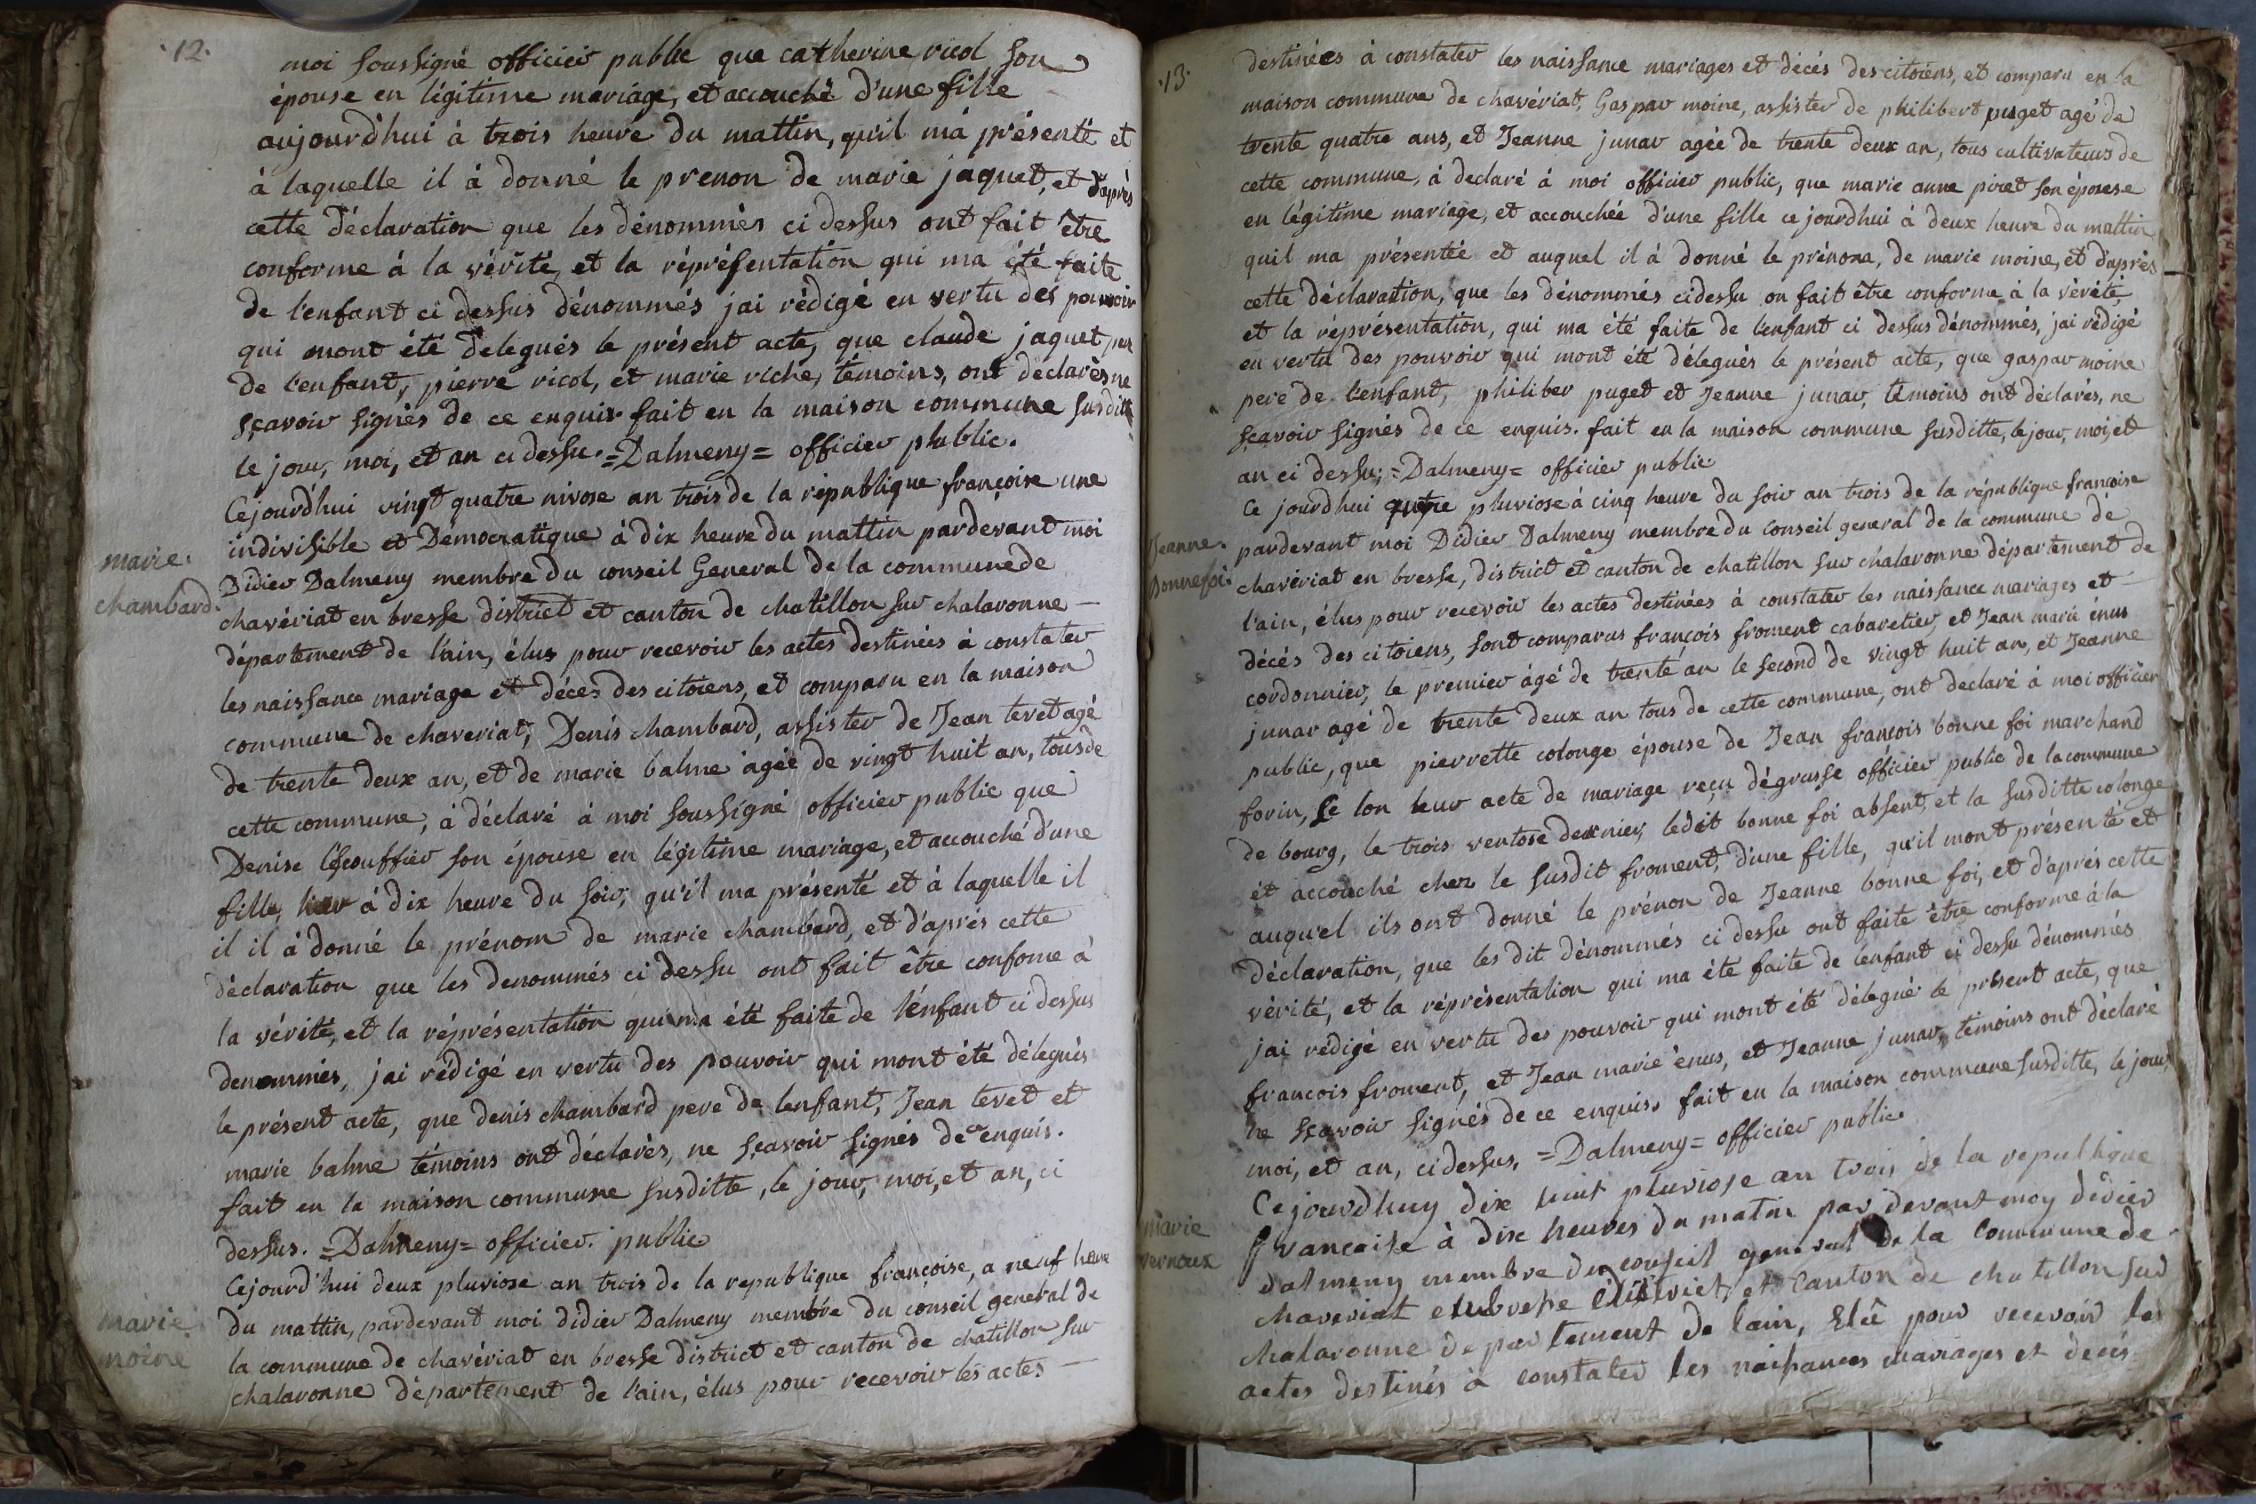 .12.
moi soussigné officier public que catherine ricol son
épouse en légitime mariage, et accouché d'une fille
aujourd'hui à trois heure du mattin, qu'il ma présenté et
à laquelle il à donné le prenon de marie jaquet, et d'après
cette déclaration que les dénommés ci dessus ont fait être
conforme à la vérité, et la réprésentation qui ma été faite
de l'enfant ci dessus dénommés jai rédigé en vertu des pouvoir
qui mont été delegués le présent acte, que claude jaquet per
de l'enfant, pierre ricol, et marie riche, témoins, ont déclarés ne
sçavoir signés de ce enquis fait en la maison commune susditte
le jour, moi, et an ci dessu. =Dalmeny= officier plublic.
marie
chambard.
Cejourd'hui vingt quatre nivose an trois de la république françoise une
indivisible et Democratique à dix heure du mattin pardevant moi
Didier Dalmeny membre du conseil General de la commune de
chavériat en bresse district et canton de chatillon sur chalaronne
département de l'ain, élus pour recevoir les actes destinées à constater
les naissance mariage et décès des citoiens, et comparu en la maison
commune de chaveriat, Denis chambard, assister de Jean tevet agé
de trente deux an, et de marie balme agée de vingt huit an, tous de
cette commune, à déclaré à moi soussigné officier public que
Denise lescouffier son épouse en légitime mariage, et accouché d'une
fille, hier à dix heure du soir, qu'il ma présenté et à laquelle il
il il à donné le prénom de marie chambard, et d'après cette
déclaration que les denommés ci dessu ont fait être confome à
la vérité, et la réprésentation qui ma été faite de l'énfant ci dessus
denommés, jai rédigé en vertu des pouvoir qui mont été délegués
le présent acte, que denis chambard pere de lenfant, Jean tevet et
marie balme témoins ont déclarés, ne sçavoir signés de ce enquis.
fait en la maison commune susditte, le jour, moi, et an, ci
dessus. =Dalmeny= officier. public
marie
moine
Cejourd'hui deux pluviose an trois de la republique françoise, a neuf heure
du mattin, pardevant moi didier Dalmeny membre du conseil general de
la commune de chavériat en bresse district et canton de chatillon sur
chalaronne département de l'ain, élus pour recevoir les actes
.13.
destinées à constater les naissance mariages et décès des citoiens, et comparu en la
maison commune de chavériat, Gaspar moine, assister de philibert puget agé de
trente quatre ans, et Jeanne junar agée de trente deux an, tous cultivateurs de
cette commune, à declaré à moi officier public, que marie anne piret son épouse
en légitime mariage, et accouchée d'une fille ce jourdhui à deux heure du mattin
quil ma présentée et auquel il à donné le prénom, de marie moine, et d'après
cette déclaration, que les dénommés cidessu on fait être conforme à la vérité
et la réprésentation, qui ma été faite de l'enfant ci dessus dénommés, jai rédigé
en vertu des pouvoir qui mont été délegués le présent acte, que gaspar moine
pere de l'enfant, philiber puget et Jeanne junar, témoins ont déclarés, ne
sçavoir signés de ce enquis. fait en la maison commune susditte, le jour, moi, et
an ci dessu; =Dalmeny= officier public
Jeanne.
Bonnefoi.
Ce jourdhui quatre pluviose à cinq heure du soir an trois de la république françoise
pardevant moi Didier Dalmeny membre du conseil general de la commune de
chavériat en bresse, district et canton de chatillon sur chalaronne département de
l'ain, élus pour recevoir les actes destinées à constater les naissance mariages et
décés des citoiens, sont comparus françois froment cabaretier, et Jean marie énus
cordonnier, le premier âgé de trente an le second de vingt huit an, et Jeanne
junar agé de trente deux an tous de cette commune, ont declaré à moi officier
public, que pierrette colonge épouse de Jean françois bonne foi marchand
forin, se lon leur acte de mariage reçu dégrusse officier public de la commune
de bourg, le trois ventose dernier, ledit bonne foi absent, et la susditte colonge
et accouché chez le susdit froment, d'une fille, qu'il mont présenté et
auquel ils ont donné le prénon de Jeanne bonne foi, et d'aprés cette
déclaration, que les dit dénommés ci dessu ont faite être conforme à la
vérité, et la réprésentation qui ma été faite de l'enfant ci dessu dénommés
jai rédigé en vertu des pouvoir qui mont été délegué le présent acte, que
francois froment, et Jean marie énus, et Jeanne junar, temoins ont déclaré
ne sçavoir signés de ce enquis. fait en la maison commune susditte, le jour,
moi, et an, cidessus, =Dalmeny= officier public.
marie
vernoux
Cejourdhuy dix huit pluviose an trois de la republique
francaise à dix heures du matin par devant moy didier
dalmeny membre du conseil general de la commune de
chaveriat district et Canton de chatillon sur
chalaronne departement de lain, Elû pour recevoir les
actes destinés à constater les naissances mariages et decés